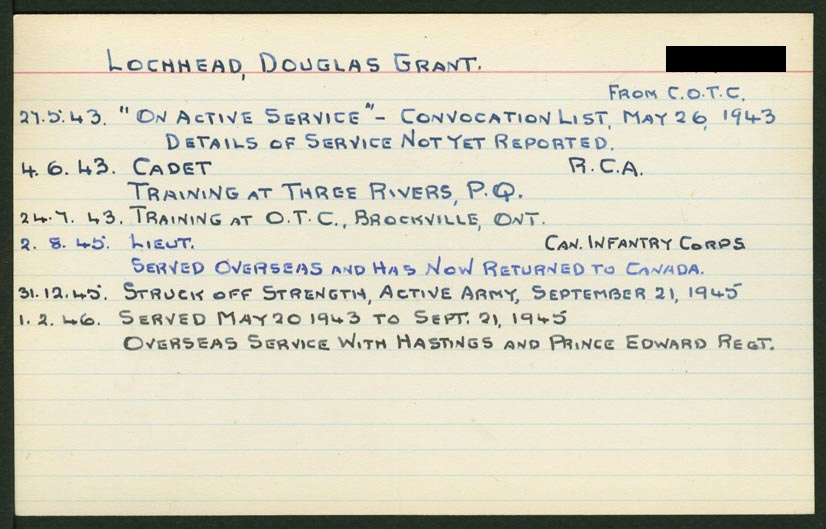 LOCHHEAD, DOUGLAS GRANT.
FROM C.O.T.C.
27.5.43. "ON ACTIVE SERVICE" - CONVOCATION LIST, MAY 26, 1943
DETAILS OF SERVICE NOT YET REPORTED.
4.6.43. CADET R.C.A.
TRAINING AT THREE RIVERS, P.Q.
24.7.43. TRAINING AT O.T.C., BROCKVILLE, ONT.
2.8.45. LIEUT. CAN. INFANTRY CORPS
SERVED OVERSEAS AND HAS NOW RETURNED TO CANADA.
31.12.45. STRUCK OFF STRENGTH, ACTIVE ARMY, SEPTEMBER 21, 1945
1.2.46. SERVED MAY 20 1943 TO SEPT. 21, 1945
OVERSEAS SERVICE WITH HASTINGS AND PRINCE EDWARD REGT.